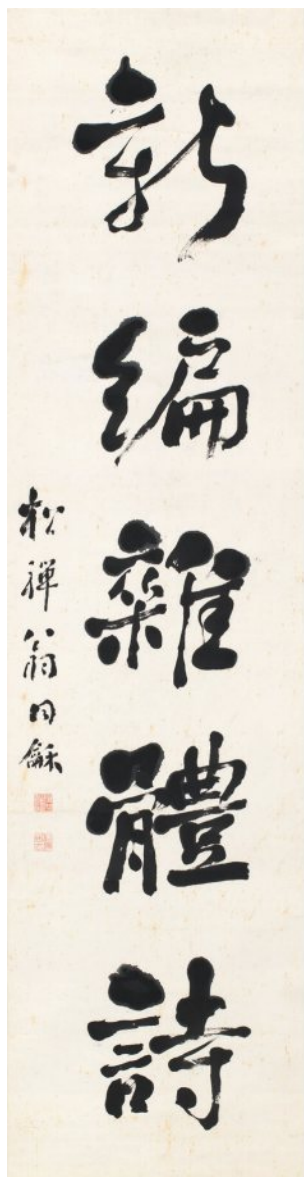 新編雜體詩
松禪翁同龢